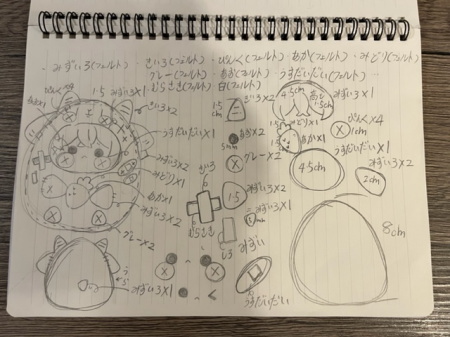 ・みずいろ(フェルト) ・きいろ(フェルト) ・ぴんく(フェルト) ・あか(フェルト) ・みどり(フェルト)
グレー(フェルト) ・あお(フェルト) ・うすだいだい(フェルト)
むらさき(フェルト) 白(フェルト)
きいろ×2
うすだいだい×1
みずいろ×2
みどり×1
あか×1
みずいろ×2
グレー×2
みずいろ×1
1.5cm
きいろ×2
あお×2
5mm
グレー×2
1.5
みずいろ×2
みずいろ×1
むらさき
みずい
うすだいだい
4.5cm
1.5cm
みずいろ×1
みどり×1
あか×1
ぴんく×4
1cm
うすだいだい×1
4.5cm
みずいろ×2
2cm
8cm